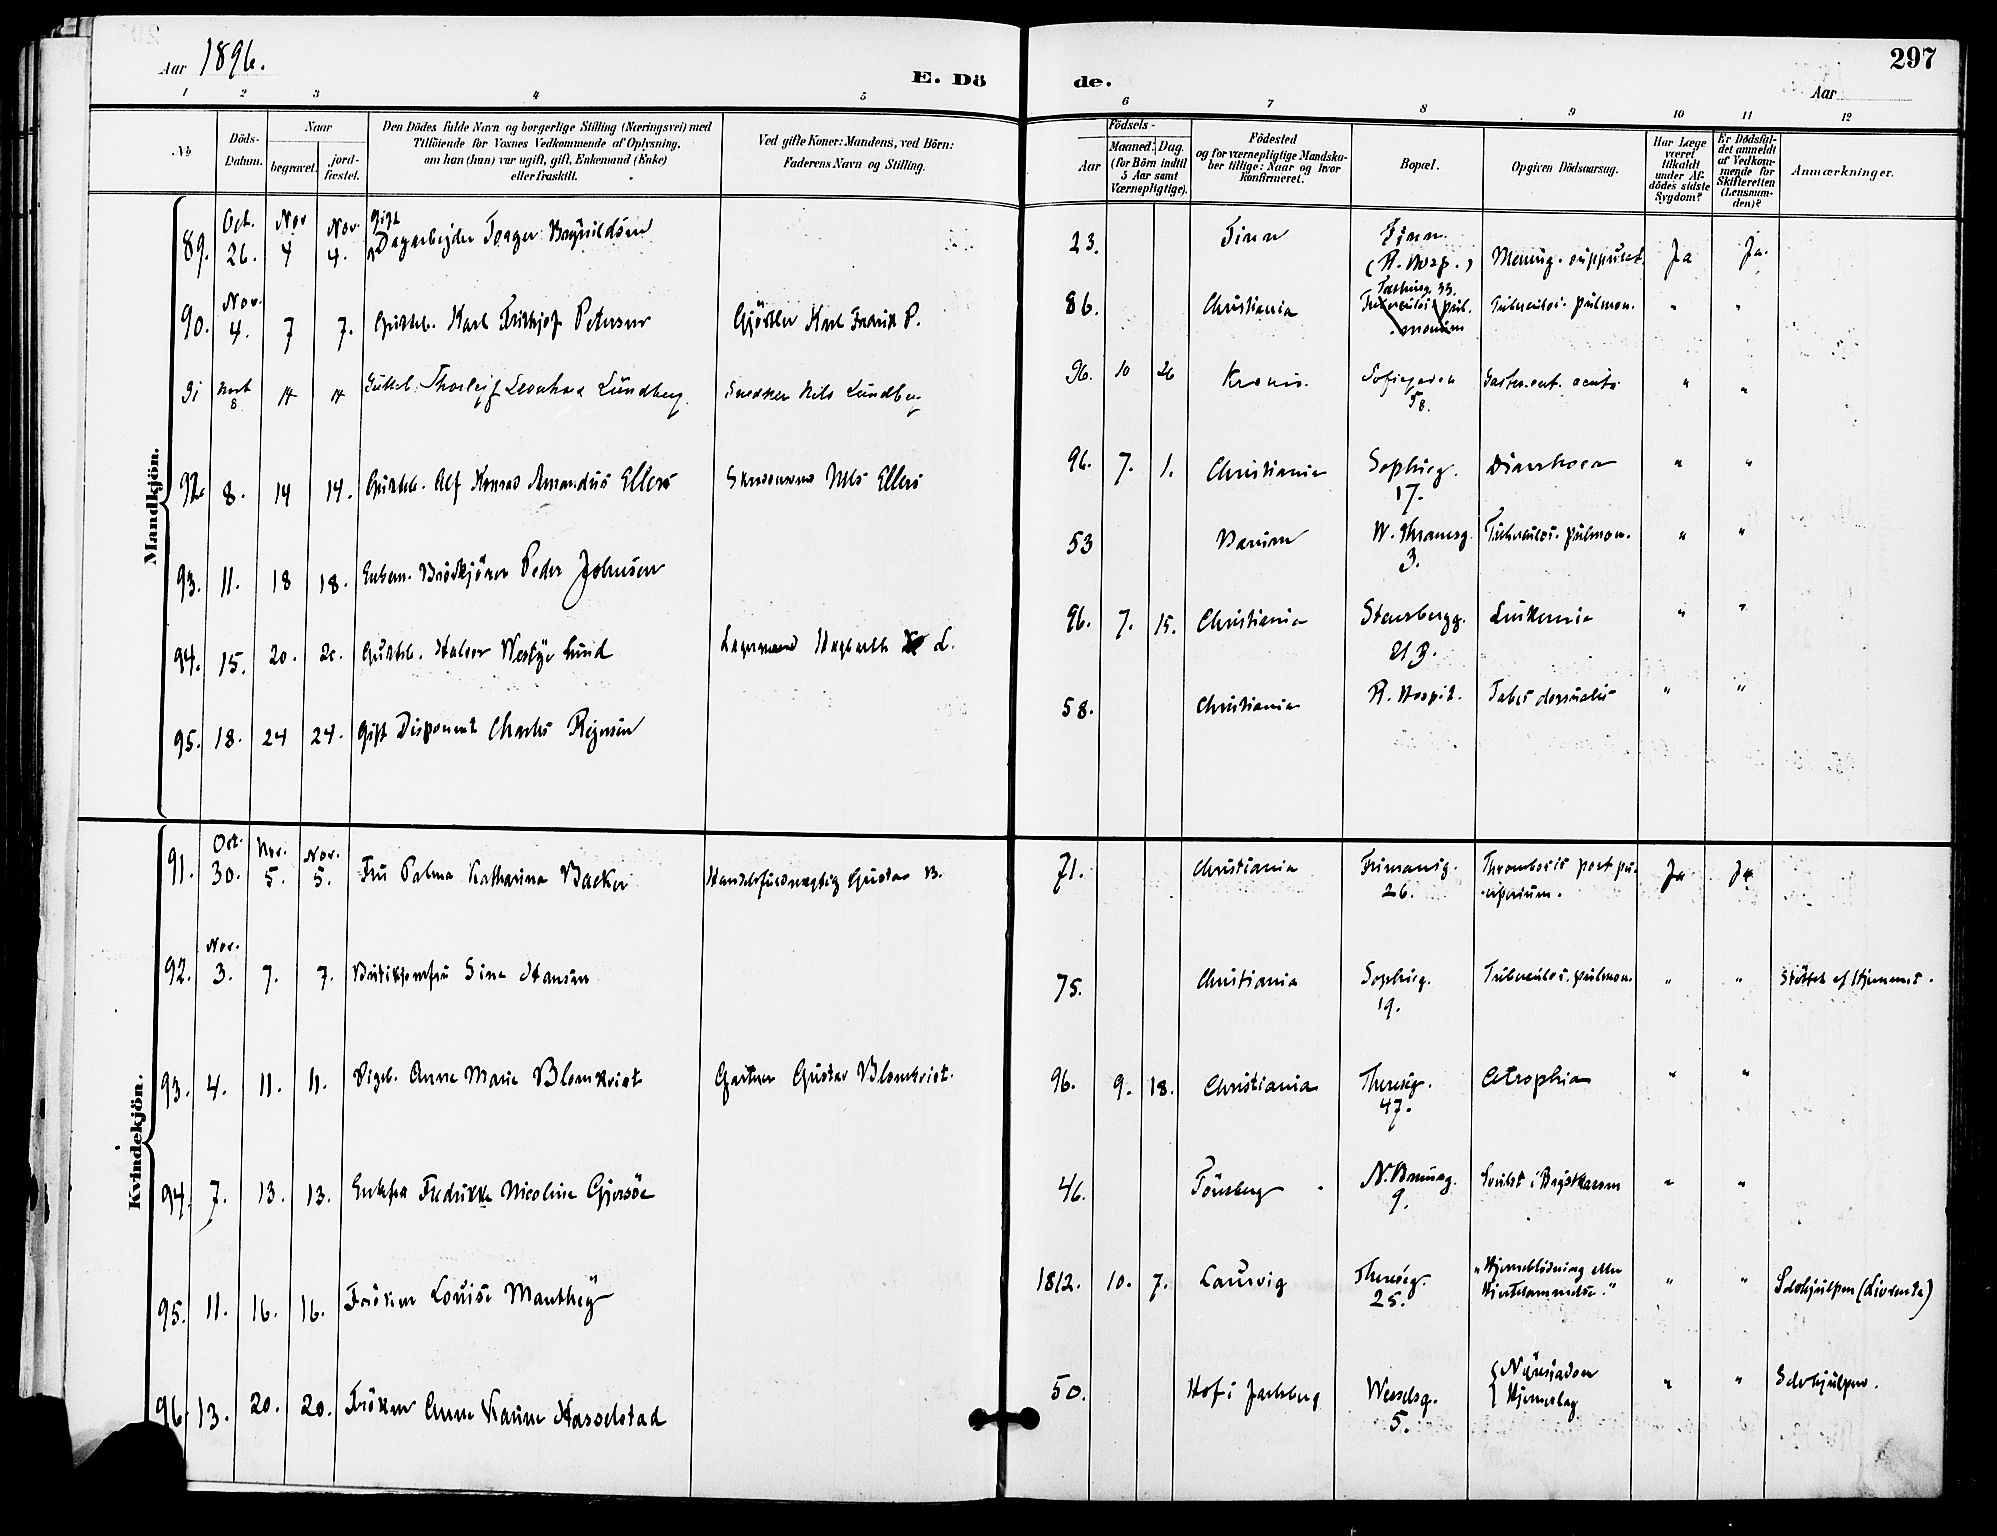 Aar 1896.
E. Dö de.
297
Aar
1 2 3 4 5 6 7 8 9 10 11 12
No
Döds-Datum.
Naar
begravet.
jord-fæstet.
Den Dödes fulde Navn og borgerlige Stilling (Næringsvei) med
Tilföiende for Voxnes Vedkommende af Oplysning,
om han (hun) var ugift, gift, Enkemand (Enke)
eller fraskilt.
Ved gifte Koner: Mandens, ved Börn:
Faderens Navn og Stilling.
Födsels-
Aar
Maaned.
Dag.
(for Börn indtil
5 Aar samt
Værnepligtige).
Födested
og for værnepligtige Mandska-
ber tillige: Naar og hvor
konfirmeret.
Bopæl.
Opgiven Dödsaarsag.
Har Læge
været
tilkaldt
under Af-
dödes sidste
Sygdom?
Er Dödsfal-
det anmeldt
af Vedkom-
mende for
Skifteretten
(Lensman-
den)?
Anmærkninger.
Mandkjön.
89. Oct. 26. Nov 4 Nov. 4. Gift Dagarbejder Torger Brynildsen 23. Finn (R. Hosp.) Mening. suppurat. Ja Ja.
90. Nov. 4. 7 7. Gutteb. Karl Frithjof Petersen Gjörtler Karl Fredrik P. 86. Christiania 33. Tuberculos. pulmonum Tuberculos. pulmon. " "
91 8 14 14 Gutteb. Thorleif Leonhard Lundberg Snedker Nils Lundberg 96. 10 26 Kronis. Sofiegaden 58. Gastro. ent. acuta " "
92. 8. 14 14. Gutteb. Alf Konrad Amandus Ellers Nils Ellers 96. 7. 1. Christiania Sophieg. 17. Diarrhoea " "
93. 11. 18 18. Enkem. Brödkjörer Peder Johnsen 53 Bærum 3. Tuberculos. pulmon. " "
94. 15. 20. 20. Gutteb. Halvor Westye Lund Lagermand Hagbarth L. 96. 7. 15. Christiania Stensbergg. 21 B. Leukemia " "
95. 18. 24 24. Gift Disponent Charles 58. Christiania R. Hospit. Tabes dorsualis " "
Kvindekjön.
91. Oct. 30. Nov. 5. Nov. 5. Fru Palma Katharina Backer Handelsfuldmægtig Gustav B. 71. Christiania 26. Thrombosis post puerperium. Ja Ja
92. Nov. 3. 7. 7. Butikjomfru Sina Hansen 75. Christiania Sophieg. 19. Tuberculos. pulmon. " " Støttet af Hjemmet.
93. 4. 11. 11. Pigeb. Anne Marie Blomkvist Gartner Gustav Blomkvist. 96. 9. 18. Christiania Theresg. 47. Atrophia " "
94. 7. 13. 13. Enkefru Fredrikke Nicoline Gjersöe 46. Tönsberg 9. Svulst i Brystkassen " "
95. 11. 16. 16. Fröken Louise Manthey 1812. 10. 7. Laurvig Theresg. 25. "Hjerneblödning eller Hjertelammelse." " " Selvhjulpen (Livrente)
96. 13. 20. 20. Fröken Anne Karine Hasselstad 50. Hof i Jarlsberg Wesselsg. 5. Hjerneslag " " Selvhjulpen.